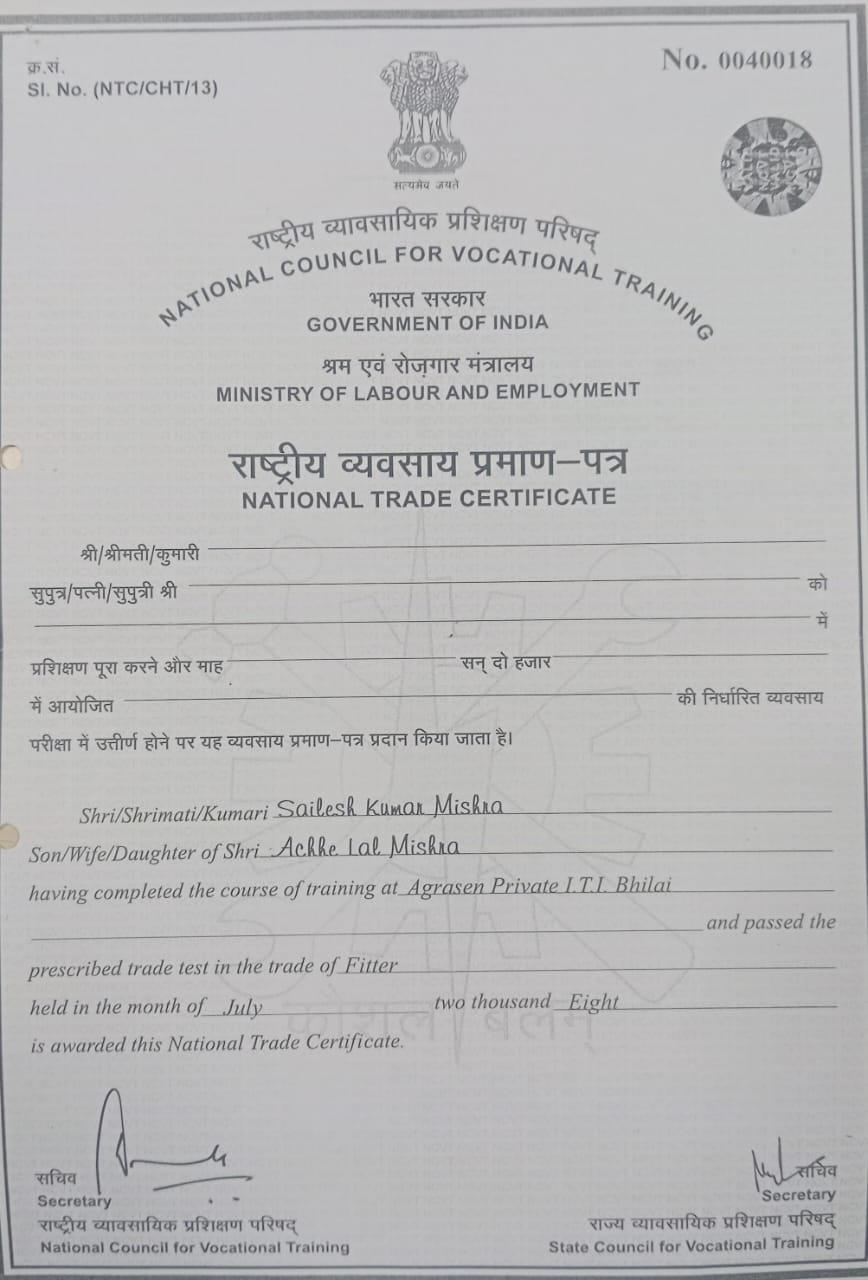 क्र.सं.
Sl. No. (NTC/CHT/13)
No. 0040018
सत्यमेव जयते
राष्ट्रीय व्यावसायिक प्रशिक्षण परिषद्
NATIONAL COUNCIL FOR VOCATIONAL TRAINING
भारत सरकार
GOVERNMENT OF INDIA
श्रम एवं रोज़गार मंत्रालय
MINISTRY OF LABOUR AND EMPLOYMENT
राष्ट्रीय व्यवसाय प्रमाण–पत्र
NATIONAL TRADE CERTIFICATE
श्री/श्रीमती/कुमारी
सुपुत्र/पत्नी/सुपुत्री श्री को
में
प्रशिक्षण पूरा करने और माह सन् दो हजार
में आयोजित की निर्धारित व्यवसाय
परीक्षा में उत्तीर्ण होने पर यह व्यवसाय प्रमाण–पत्र प्रदान किया जाता है।
Shri/Shrimati/Kumari Sailesh Kumar Mishra
Son/Wife/Daughter of Shri Achhe Lal Mishra
having completed the course of training at Agrasen Private I.T.I. Bhilai
and passed the
prescribed trade test in the trade of Fitter
held in the month of July two thousand Eight
कौशल बलम्
is awarded this National Trade Certificate.
सचिव
Secretary
राष्ट्रीय व्यावसायिक प्रशिक्षण परिषद्
National Council for Vocational Training
सचिव
Secretary
राज्य व्यावसायिक प्रशिक्षण परिषद्
State Council for Vocational Training